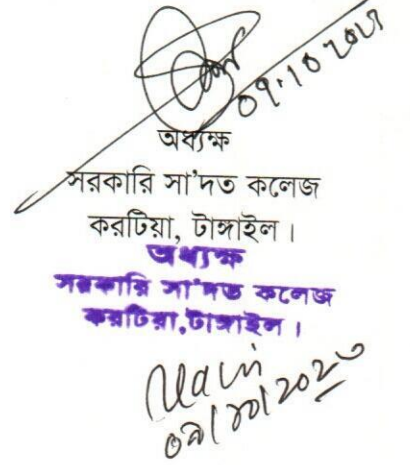 অধ্যক্ষ
সরকারি সা'দত কলেজ
করটিয়া, টাঙ্গাইল।
অধ্যক্ষ
সরকারি সা'দত কলেজ
করটিয়া,টাঙ্গাইল।
০৯/১০/২০২৩